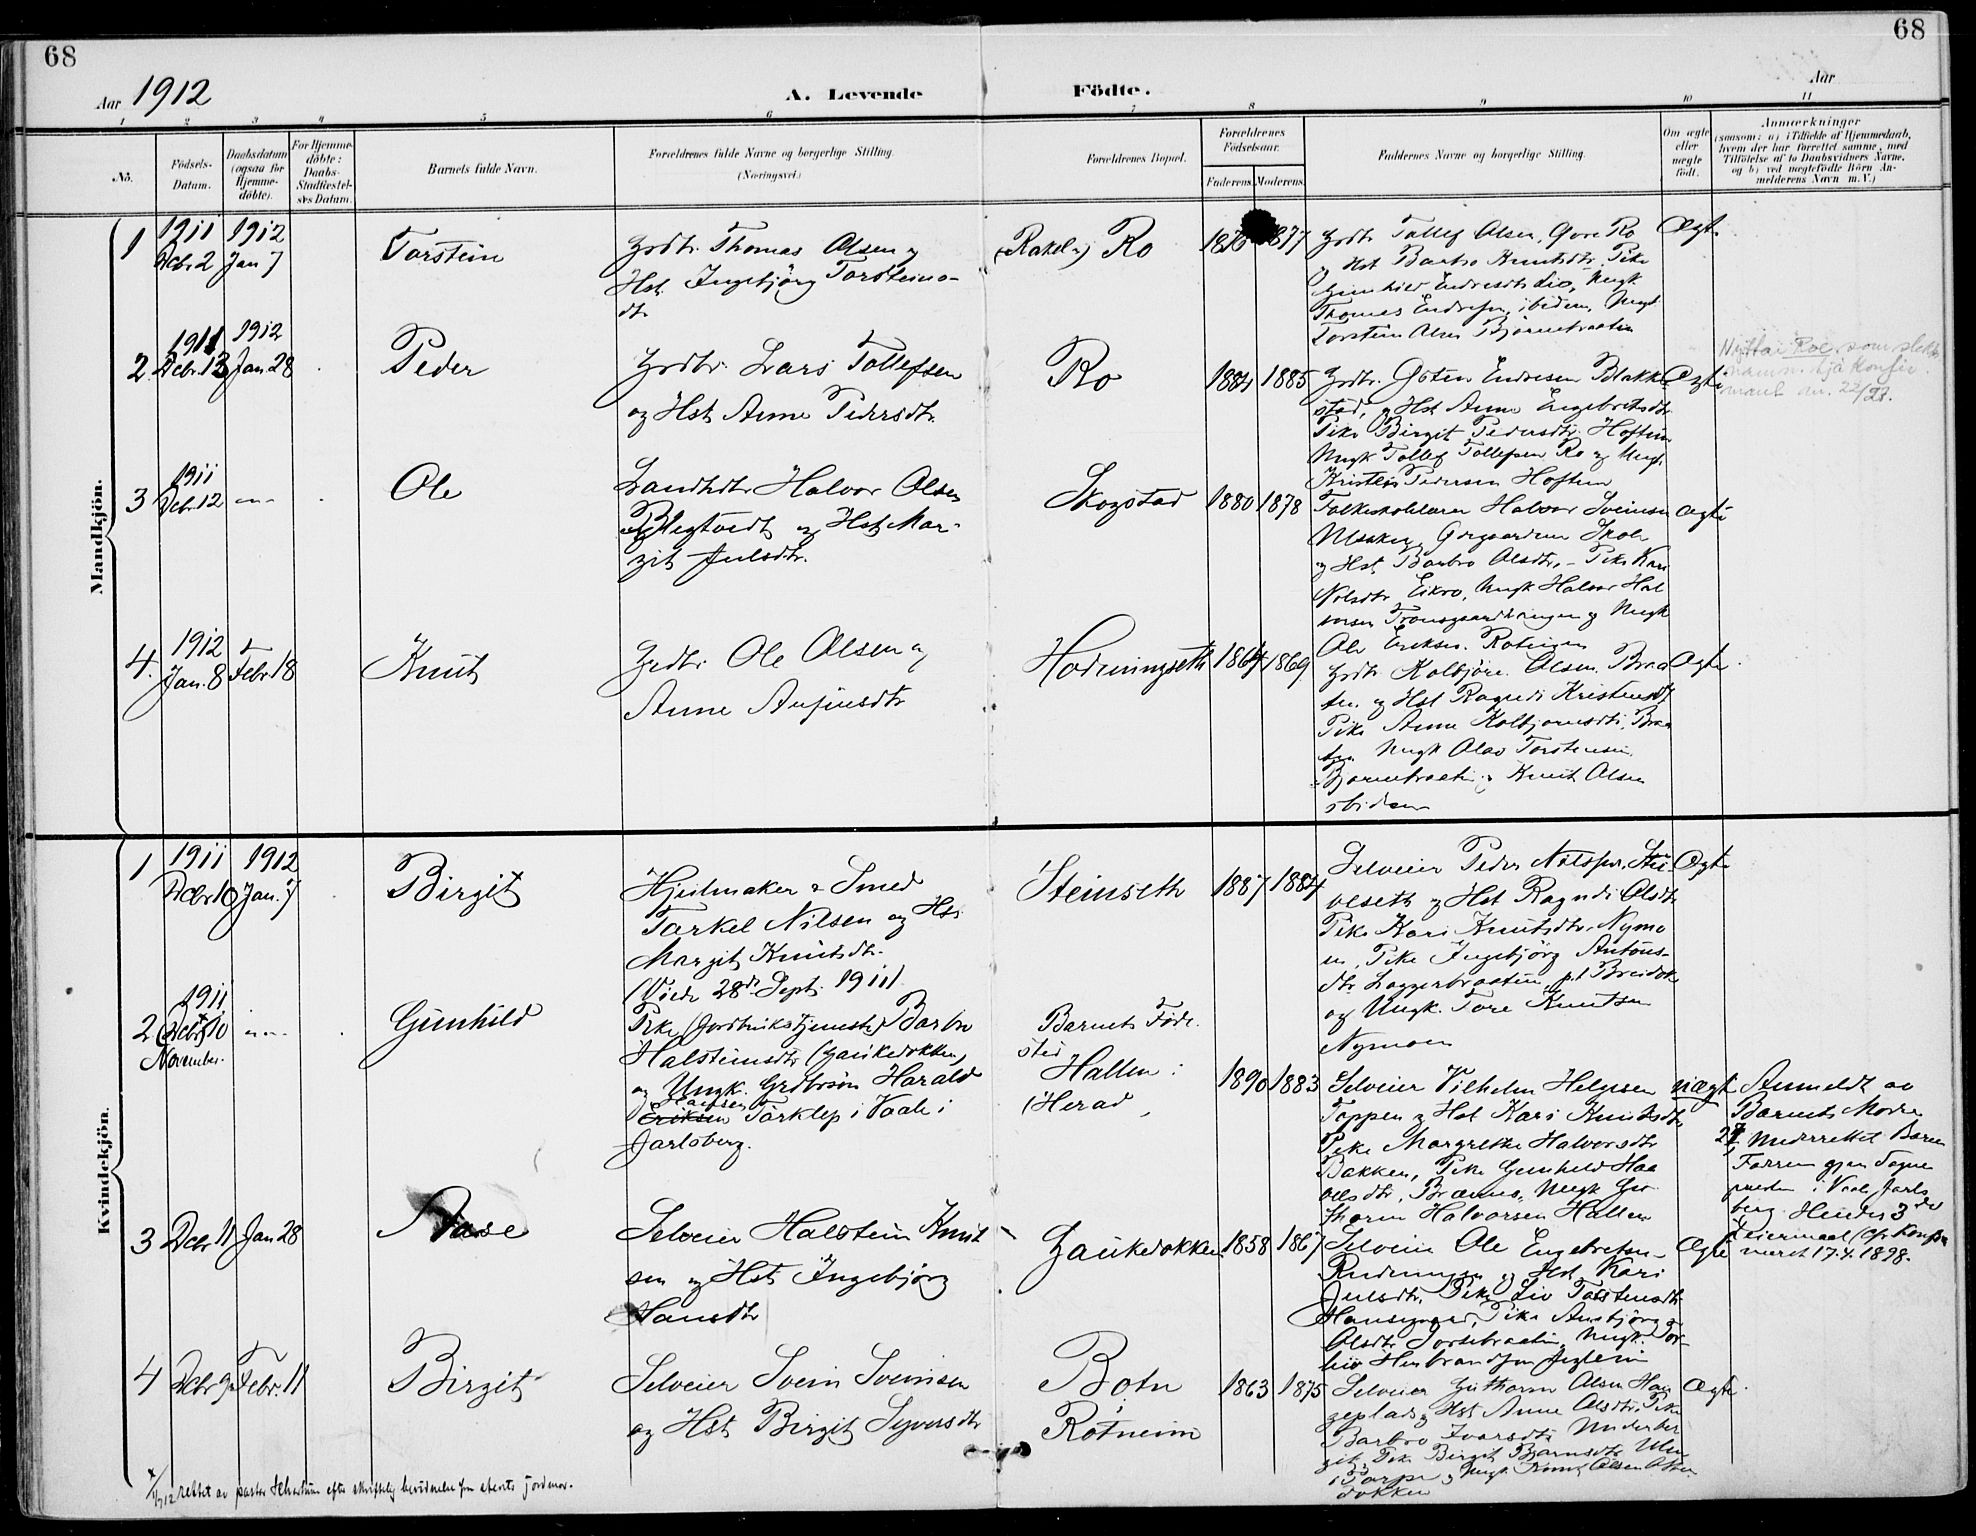 68
68
Aar 1912
A. Levende Födte.
Aar
1 2 3 4 5 6 7 8 9 10 11
No.
Födsels-Datum.
Daabsdatum (ogsaa for Hjemme-döbte).
For Hjemme-döbte: Daabs-Stadfæstel-ses Datum.
Barnets fulde Navn.
Forældrenes fulde Navne og borgerlige Stilling.
(Næringsvei.)
Forældrenes Bopæl.
Forældrenes Födselsaar.
Faderens. Moderens.
Faddernes Navne og borgerlige Stilling.
Om ægte eller uægte födt.
Anmærkninger
(saasom: a) i Tilfælde af Hjemmedaab, hvem der har forrettet samme, med Tilföielse af to Daabsvidners Navne, og b) ved uægtefödte Börn Anmelderens Navn m. V.)
Mandkjön.
1
1911 1912
Dcbr. 2 Jan 7
Torstein
Grdbr. Thomas Olsen og
Hst. Ingebjörg Torsteins-
dtr
(Rakel) Ro
1877
Grdbr Tollef Olsen, Ro
og Hst Barbro Knutsdtr. Pike
Gunhild Endresdtr Lio, Ungk
Thomas Endresen, ibidem, Ungk
Torstein Olsen Bjørnebraaten
Ægte
2
1911 1912
Dcbr. 13 Jan. 28
Peder
Grdbr. Lars Tollefsen
og Hst Anne Pedersdtr.
Ro
1884 1885
Grdbr. Gösten Endresen Blakke-
stad, og Hst Anne Engebretsdtr
Pike Birgit Pedersdtr. Hoftun
Ungk Tollef Tollefsen Ro og Ungk.
Kristen Pedersen Hoftun
Ægte
som slekts
namn. hjå konfir
mant nr. 22/27.
3
1911
Dcbr. 12 -"-
Ole
Landhdlr Halvor Olsen
og Hst Mar-
git Julsdtr.
Skogstad
1880 1878
Folkeskolelærer Halvor Sveinsen
og Hst Barbro Olsdtr, - Pike Kari
Nilsdtr Eikro, Ungk Halvor Hal
vorsen og Ungk
Ole Eriksen Rotneim
ægte
4.
1912
Jan. 8 Febr. 18
Knut
Grdbr. Ole Olsen og
Anne Anfinsdtr
1864 1869
Grdbr Kolbjörn Olsen Braa
ten og Hst Ragndi Kristensdtr
Pike Anne Kolbjörnsdtr. Braa
ten Ungk Olav Torstensen
Bjørnebraaten og Knut Olsen
ibidem
Ægte.
Kvindekjön.
1
1911 1912
Dcbr 10 Jan. 7
Birgit
Hjulmaker & Smed
Tarkel Nilsen og Hst
Margit Knutsdtr.
(Viede 28de Sept. 1911)
Steinseth
1887 1884
Selveier Peder Nilssen. Stei-
olseth og Hst Ragndi Olsdtr
Pike Kari Knutsdtr. Nymo
en, Pike Ingebjörg Antons-
dtr Laggerbraaten, p.t.
og Ungk. Tore Knutsen
Nymoen
Ægte
2
1911
Dcbr. 10 -"-
November.
Gunhild
Pike (Jordbrukstjeneste) Barbro
Halsteinsdtr (Gaukedokken)
og Ungk. Grdbrsön Harald
Hansen
Eriksen Tarklep i Vaale i
Jarlsberg.
Barnets Föde-
sted
Hallen i
(Herad
1890 1883
Selveier Vilhelm Helgesen
Toppen og Hst Kari Knutsdtr
Pike Margrethe Halvorsdtr
Bakken, Pike Gunhild Haa
volsdtr, Brænno, Ungk Gu-
thorm Halvorsen Hallen
uægte
Anmeldt av
Barnets Moder
Underrettet Barne
Faderen gjen. Sogne
presten i Vaale, Jarls
berg. Hendes 3die
Leiermaal (cfr Konfir
meret 17.4.1898.
3
Dcbr 11 Jan 28
Aase
Selveier Halstein Knut
sen og Hst Ingebjörg
Hansdtr
Gaukedokken
1858 1867
Selveier Ole Engebretsen
og Hst Kari
Julsdtr. Pike Liv Torstensdtr
Hansegaard, Pike Ambjörg
Olsdtr Torsebraaten, Ungk. Tor-
Ægte
4
Dcbr 9 Febr. 11
Birgit
Selveier Svein Sveinsen
og Hst Birgit Syversdtr
Botn
i
Rotneim
1863 1875
Selveier Guthorm Olsen Hau
geplads og Hst Anne Olsdtr, Pike
Barbro Ivarsdtr Underber
Pike Birgit Bjørnsdtr
i Torpe og Ungk Knut Olsen
dokken
Ægte.
rettet av pastor efter skriftelig bevidnelse fra stedets jordmor.